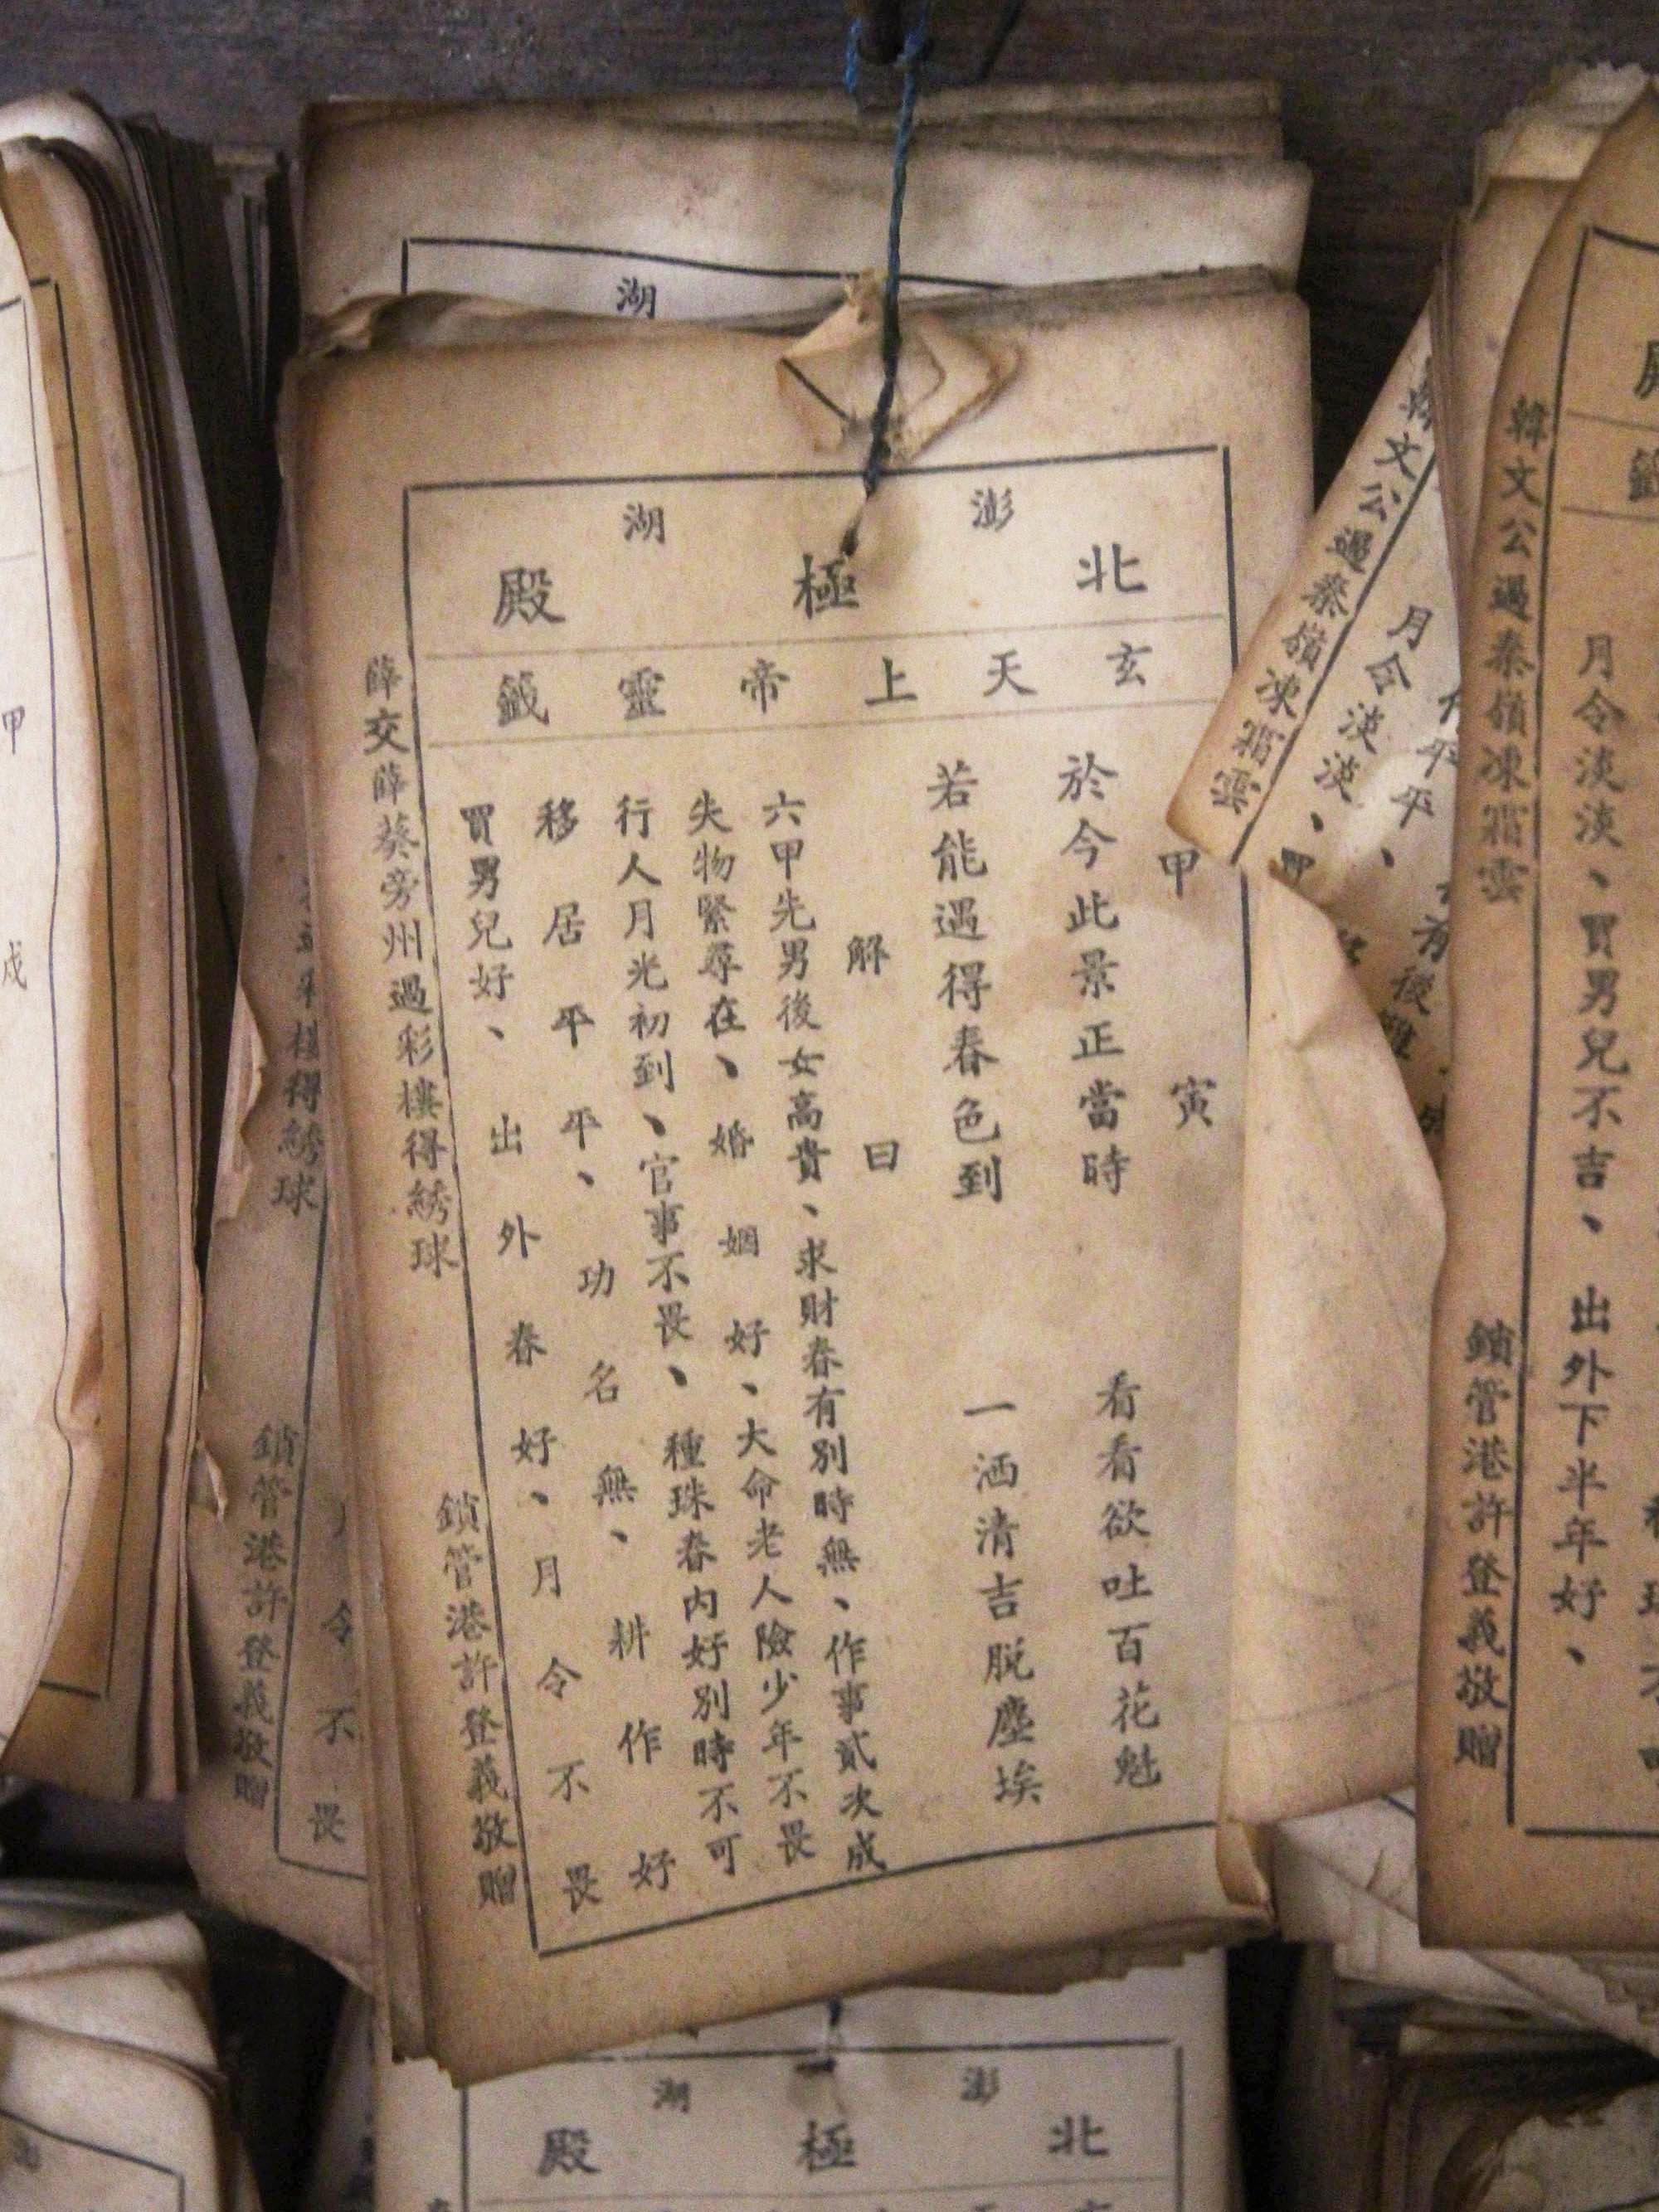 湖
澎湖
北極殿
玄天上帝靈籤
甲寅
於今此景正當時 看看欲吐百花魁
若能遇得春色到 一洒清吉脫塵埃
解曰
六甲先男後女高貴、求財春有別時無、作事貳次成
失物緊尋在、婚姻好、大命老人險少年不畏
行人月光初到、官事不畏、種珠春內好別時不可
移居平平、功名無、耕作好
買男兒好、出外春好、月令不畏
薛交薛葵旁州過彩樓得綉球 鎖管港許登義敬贈
韓文公過秦嶺凍霜雲
月令淡淡、
韓文公過秦嶺凍霜雲 鎖管港許登義敬贈
月令淡淡、買男兒不吉、出外下半年好、
得綉球 鎖管港許登義敬贈
令不畏
甲
戌
澎湖
北極殿